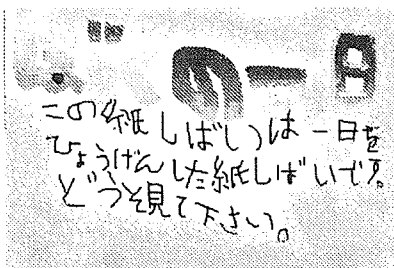 の一日
この紙しばいは一日を
ひょうげんした紙しばいです。
どうぞ見て下さい。